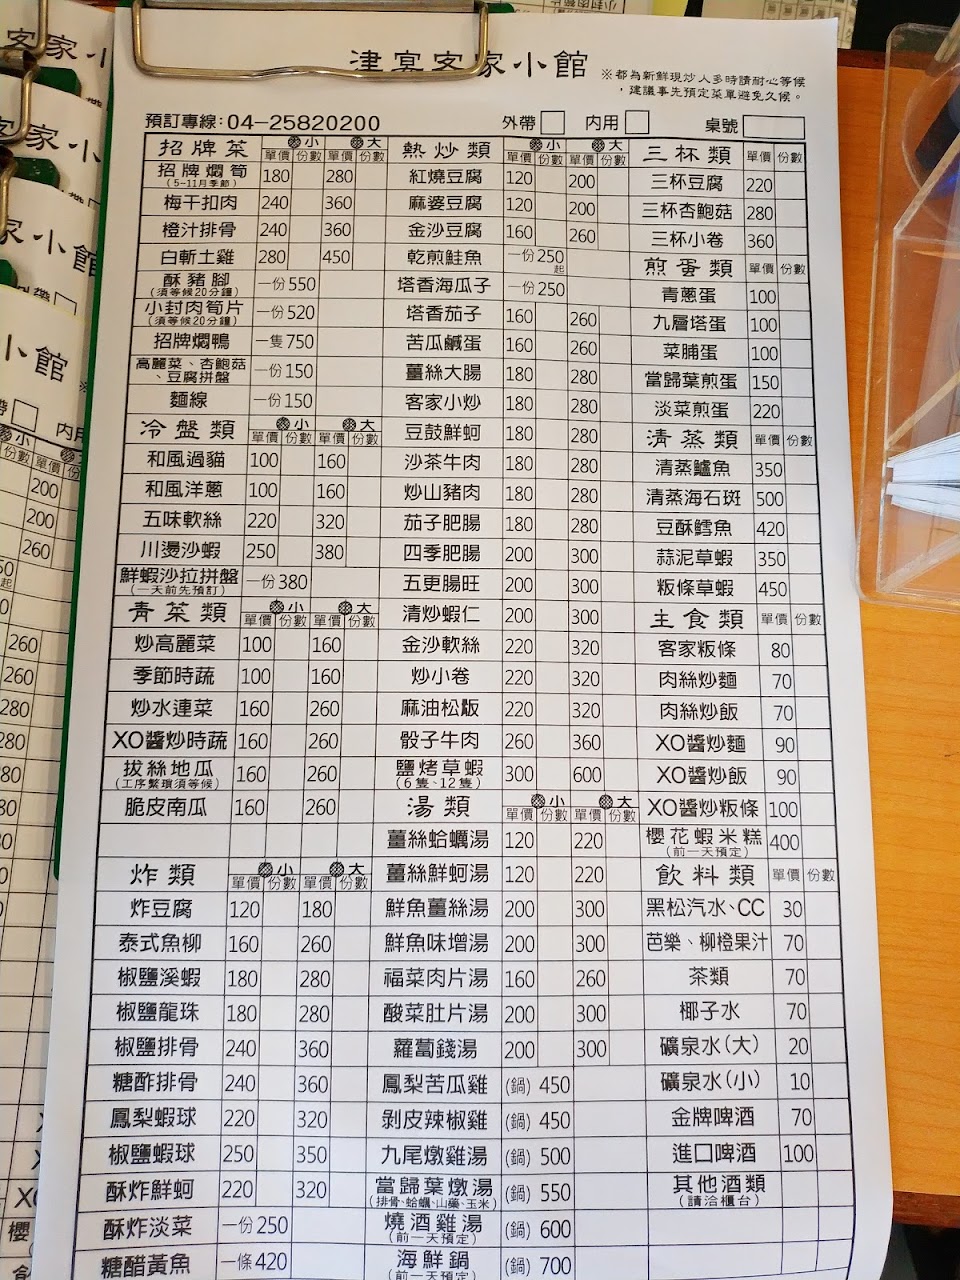 津宴客家小館
※都為新鮮現炒人多時請耐心等候
，建議事先預定菜單避免久候。
預訂專線:04-25820200 外帶 內用 桌號
招牌菜 小 大
單價 份數 單價 份數
招牌燜筍 180 280
(5-11月季節)
梅干扣肉 240 360
橙汁排骨 240 360
白斬土雞 280 450
酥豬腳 一份550
(須等候20分鐘)
小封肉筍片 一份520
(須等候20分鐘)
招牌燜鴨 一隻750
高麗菜、杏鮑菇
、豆腐拼盤 一份150
麵線 一份150
冷盤類 小 大
單價 份數 單價 份數
和風過貓 100 160
和風洋蔥 100 160
五味軟絲 220 320
川燙沙蝦 250 380
鮮蝦沙拉拼盤 一份380
(一天前先預訂)
青菜類 小 大
單價 份數 單價 份數
炒高麗菜 100 160
季節時蔬 100 160
炒水連菜 160 260
XO醬炒時蔬 160 260
拔絲地瓜 160 260
(工序繁瑣須等候)
脆皮南瓜 160 260
炸類 小 大
單價 份數 單價 份數
炸豆腐 120 180
泰式魚柳 160 260
椒鹽溪蝦 180 280
椒鹽龍珠 180 280
椒鹽排骨 240 360
糖酢排骨 240 360
鳳梨蝦球 220 320
椒鹽蝦球 250 350
酥炸鮮蚵 220 320
酥炸淡菜 一份250
糖醋黃魚 一條420
熱炒類 小 大
單價 份數 單價 份數
紅燒豆腐 120 200
麻婆豆腐 120 200
金沙豆腐 160 260
乾煎鮭魚 一份250起
塔香海瓜子 一份250
塔香茄子 160 260
苦瓜鹹蛋 160 260
薑絲大腸 180 280
客家小炒 180 280
豆鼓鮮蚵 180 280
沙茶牛肉 180 280
炒山豬肉 180 280
茄子肥腸 180 280
四季肥腸 200 300
五更腸旺 200 300
清炒蝦仁 200 300
金沙軟絲 220 320
炒小卷 220 320
麻油松阪 220 320
骰子牛肉 260 360
鹽烤草蝦 300 600
(6隻、12隻)
湯類 小 大
單價 份數 單價 份數
薑絲蛤蠣湯 120 220
薑絲鮮蚵湯 120 220
鮮魚薑絲湯 200 300
鮮魚味增湯 200 300
福菜肉片湯 160 260
酸菜肚片湯 200 300
蘿蔔錢湯 200 300
鳳梨苦瓜雞 (鍋) 450
剝皮辣椒雞 (鍋) 450
九尾燉雞湯 (鍋) 500
當歸葉燉湯 (鍋) 550
(排骨、蛤蠣、山藥、玉米)
燒酒雞湯 (鍋) 600
(前一天預定)
海鮮鍋 (鍋) 700
(前一天預定)
三杯類 單價 份數
三杯豆腐 220
三杯杏鮑菇 280
三杯小卷 360
煎蛋類 單價 份數
青蔥蛋 100
九層塔蛋 100
菜脯蛋 100
當歸葉煎蛋 150
淡菜煎蛋 220
清蒸類 單價 份數
清蒸鱸魚 350
清蒸海石斑 500
豆酥鱈魚 420
蒜泥草蝦 350
粄條草蝦 450
主食類 單價 份數
客家粄條 80
肉絲炒麵 70
肉絲炒飯 70
XO醬炒麵 90
XO醬炒飯 90
XO醬炒粄條 100
櫻花蝦米糕 400
(前一天預定)
飲料類 單價 份數
黑松汽水、CC 30
芭樂、柳橙果汁 70
茶類 70
椰子水 70
礦泉水(大) 20
礦泉水(小) 10
金牌啤酒 70
進口啤酒 100
其他酒類
(請洽櫃台)